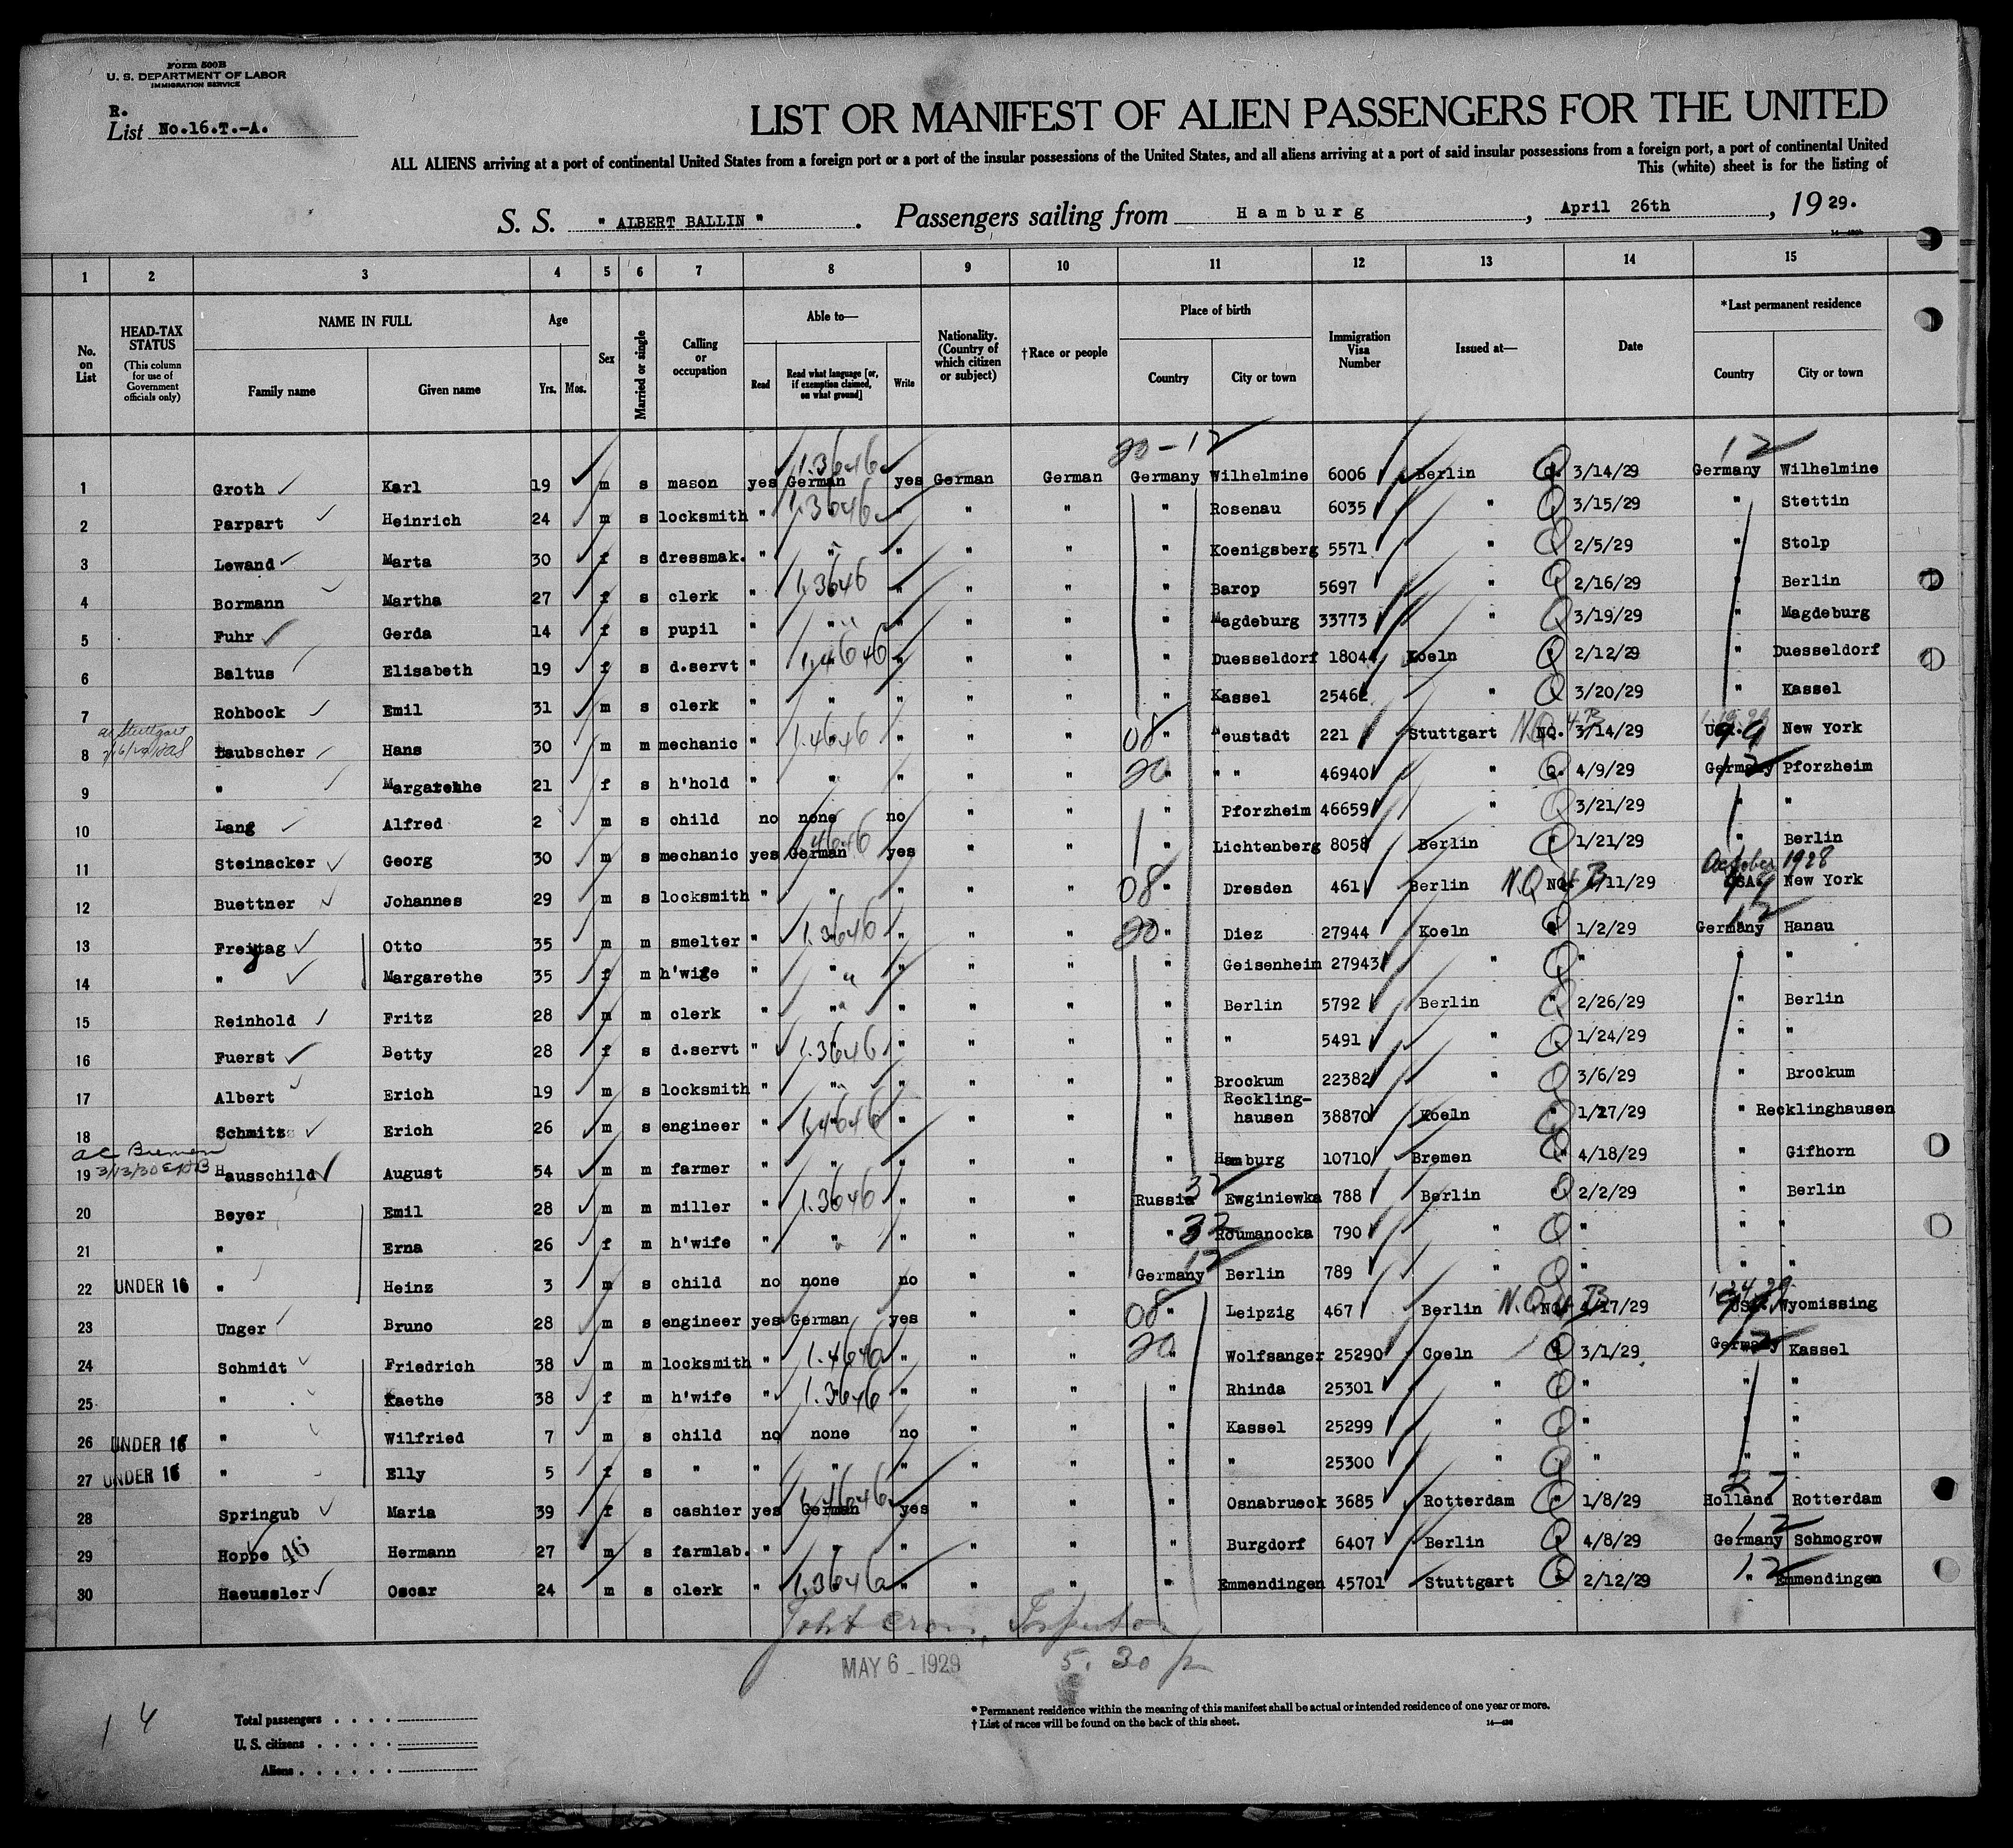 Form 500B
U. S. DEPARTMENT OF LABOR
IMMIGRATION SERVICE
R.
List No.16.T.-A.
LIST OR MANIFEST OF ALIEN PASSENGERS FOR THE UNITED
ALL ALIENS arriving at a port of continental United States from a foreign port or a port of the insular possessions of the United States, and all aliens arriving at a port of said insular possessions from a foreign port, a port of continental United
This (white) sheet is for the listing of
S. S. " ALBERT BALLIN " . Passengers sailing from Hamburg , April 26th , 19 29.
1 2 3 4 5 6 7 8 9 10 11 12 13 14 15
No. on List
HEAD-TAX STATUS (This column for use of Government officials only)
NAME IN FULL Family name Given name
Age Yrs. Mos.
Sex
Married or single
Calling or occupation
Able to— Read Read what language [or, if exemption claimed, on what ground] Write
Nationality. (Country of which citizen or subject)
†Race or people
Place of birth Country City or town
Immigration Visa Number
Issued at—
Date
*Last permanent residence Country City or town
20-12 12
1 Groth Karl 19 m s mason yes German 1.3646 yes German German Germany Wilhelmine 6006 Berlin Q. 3/14/29 Germany Wilhelmine
2 Parpart Heinrich 24 m s locksmith " 1.3646 " " " " Rosenau 6035 " Q 3/15/29 " Stettin
3 Lewand Marta 30 f s dressmak. " " " " " " Koenigsberg 5571 " Q 2/5/29 " Stolp
4 Bormann Martha 27 f s clerk " 1.3646 " " " " Barop 5697 " Q 2/16/29 " Berlin
5 Fuhr Gerda 14 f s pupil " " " " " " Magdeburg 33773 " Q 3/19/29 " Magdeburg
6 Baltus Elisabeth 19 f s d.servt " 1.4646 " " " " Duesseldorf 18044 Koeln Q 2/12/29 " Duesseldorf
7 Rohbock Emil 31 m s clerk " " " " " " Kassel 25462 " Q 3/20/29 " Kassel
ac Stuttgart
8 Laubscher Hans 30 m m mechanic " 1.4646 " " " 08 " Neustadt 221 Stuttgart N.Q. NQ. 4-B 3/14/29 USA. 99 New York
9 " Margarethe 21 f s h'hold " " " " " 20 " " " 46940 " Q. 4/9/29 Germany 12 Pforzheim
10 Lang Alfred 2 m s child no none no " " " Pforzheim 46659 " Q 3/21/29 " "
11 Steinacker Georg 30 m s mechanic yes German 1.4646 yes " " " Lichtenberg 8058 Berlin Q 1/21/29 " Berlin
October 1928
12 Buettner Johannes 29 m s locksmith " " " " " 08 " Dresden 461 Berlin N.Q NQ. 4-B /11/29 USA. 99 New York
13 Freytag Otto 35 m m smelter " 1.3646 " " " 20 " Diez 27944 Koeln Q 1/2/29 Germany 12 Hanau
14 " Margarethe 35 f m h'wife " " " " " " Geisenheim 27943 " Q " " "
15 Reinhold Fritz 28 m m clerk " " " " " " Berlin 5792 Berlin Q 2/26/29 " Berlin
16 Fuerst Betty 28 f s d.servt " 1.3646 " " " " " 5491 " Q 1/24/29 " "
17 Albert Erich 19 m s locksmith " " " " " " Brockum 22382 " Q 3/6/29 " Brockum
18 Schmitz Erich 26 m s engineer " 1.4646 " " " " Recklinghausen 38870 Koeln Q 1/27/29 " Recklinghausen
ac Bremen
19 3/13/30 Hausschild August 54 m m farmer " " " " " " Hamburg 10710 Bremen Q 4/18/29 " Gifhorn
20 Beyer Emil 28 m m miller " 1.3646 " " " Russia 32 Ewginiewka 788 Berlin Q 2/2/29 " Berlin
21 " Erna 26 f m h'wife " " " " " " 32 Roumanocka 790 " Q " " "
22 UNDER 16 " Heinz 3 m s child no none no " " Germany 12 Berlin 789 " Q " " "
23 Unger Bruno 28 m s engineer yes German yes " " 08 " Leipzig 467 Berlin N.Q NQ. 4-B 4/17/29 USA. 99 Wyomissing
24 Schmidt Friedrich 38 m m locksmith " 1.4646 " " " 20 " Wolfsanger 25290 Coeln Q 3/1/29 Germany 12 Kassel
25 " Kaethe 38 f m h'wife " 1.3646 " " " " Rhinda 25301 " Q " " "
26 UNDER 16 " Wilfried 7 m s child no none no " " " Kassel 25299 " Q " " "
27 UNDER 16 " Elly 5 f s " " " " " " " " 25300 " Q " " "
28 Springub Maria 39 f s cashier yes German 1.4646 yes " " " Osnabrueck 3685 Rotterdam Q 1/8/29 Holland 27 Rotterdam
29 Hoppe 46 Hermann 27 m s farmlab. " " " " " " Burgdorf 6407 Berlin Q 4/8/29 Germany 12 Schmogrow
30 Haeussler Oscar 24 m s clerk " 1.3646 " " " " Emmendingen 45701 Stuttgart Q 2/12/29 " 12 Emmendingen
MAY 6 1929 5.30 p
14
Total passengers
U. S. citizens
Aliens
* Permanent residence within the meaning of this manifest shall be actual or intended residence of one year or more.
† List of races will be found on the back of this sheet.